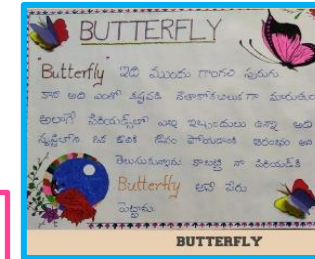 BUTTERFLY
"Butterfly" ఇది ముందు గొంగళి పురుగు
కాని అది ఎంతో కష్టపడి సీతాకోకచిలుక గా మారుతుంది
అలాగే పిరియడ్స్‌లో ఎన్ని ఇబ్బందులు ఉన్నా అది
సృష్టిలోని ఒక
తెలుసుకున్నాను కాబట్టి నా పిరియడ్‌కి
Butterfly అనే పేరు
పెట్టాను.
BUTTERFLY